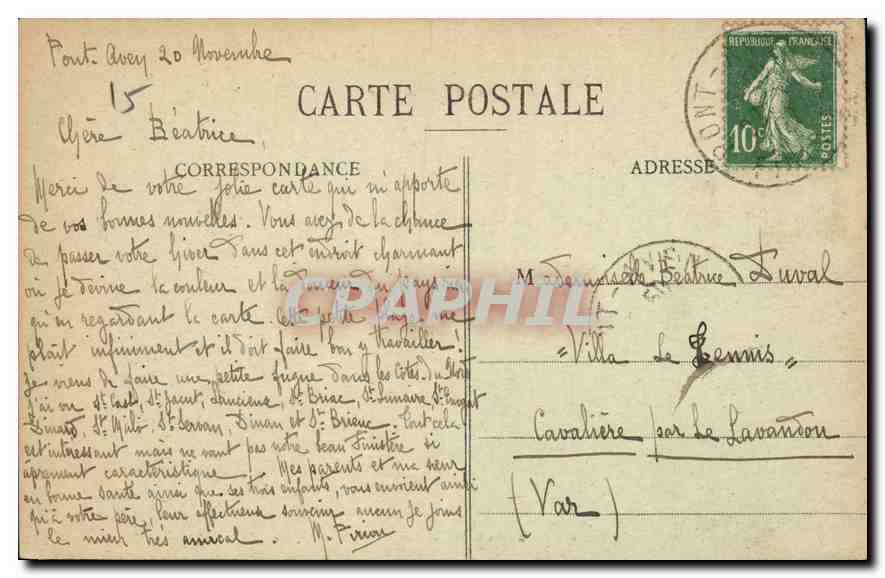 Pont-Aven 20 Novembre
15
CARTE POSTALE
Chère Béatrice,
CORRESPONDANCE
Merci de votre jolie carte qui m'apporte
de vos bonnes nouvelles. Vous avez de la chance
de passer votre hiver dans cet endroit charmant
où je devine la couleur et la du Pays rien
qu'en regardant la carte. Cette petite me
plaît infiniment et il doit faire bon y travailler!
Je viens de faire une petite fugue dans les Côtes du Nord
J'ai vu St Cast, St Jacut, Lancieux, St Briac, St Lunaire, St Enogat
Dinard, St Malo, St Servan, Dinan et St Brieuc. Tout cela
est intéressant mais ne vaut pas notre beau Finistère si
âprement caractéristique! Mes parents et ma sœur
en bonne santé ainsi que ses trois enfants, vous envoient ainsi
qu'à votre père, leur affectueux souvenir auquel je joins
le mien très amical. M. Piriou
REPUBLIQUE FRANÇAISE
10c
POSTES
PONT-
ADRESSE
Mademoiselle Béatrice Duval
"Villa Le Tennis"
Cavalière par Le Lavandou
(Var)
CPAPHIL